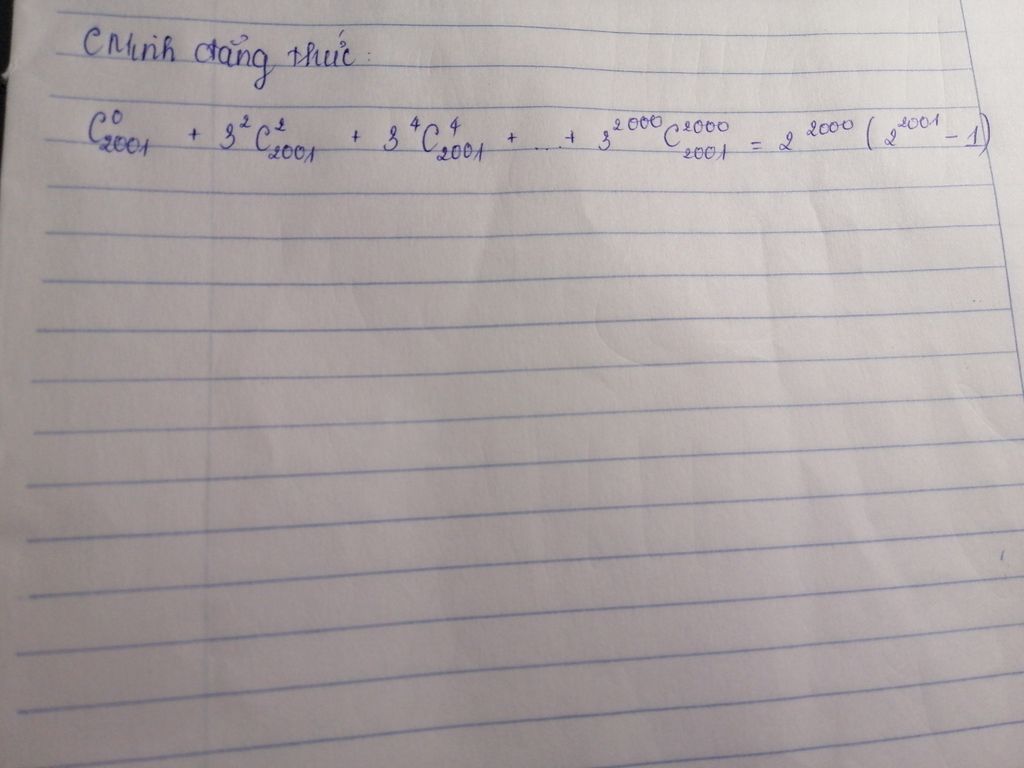 CMinh đẳng thức:
C⁰₂₀₀₁ + 3²C²₂₀₀₁ + 3⁴C⁴₂₀₀₁ + ... + 3²⁰⁰⁰C²⁰⁰⁰₂₀₀₁ = 2²⁰⁰⁰(2²⁰⁰¹ - 1)